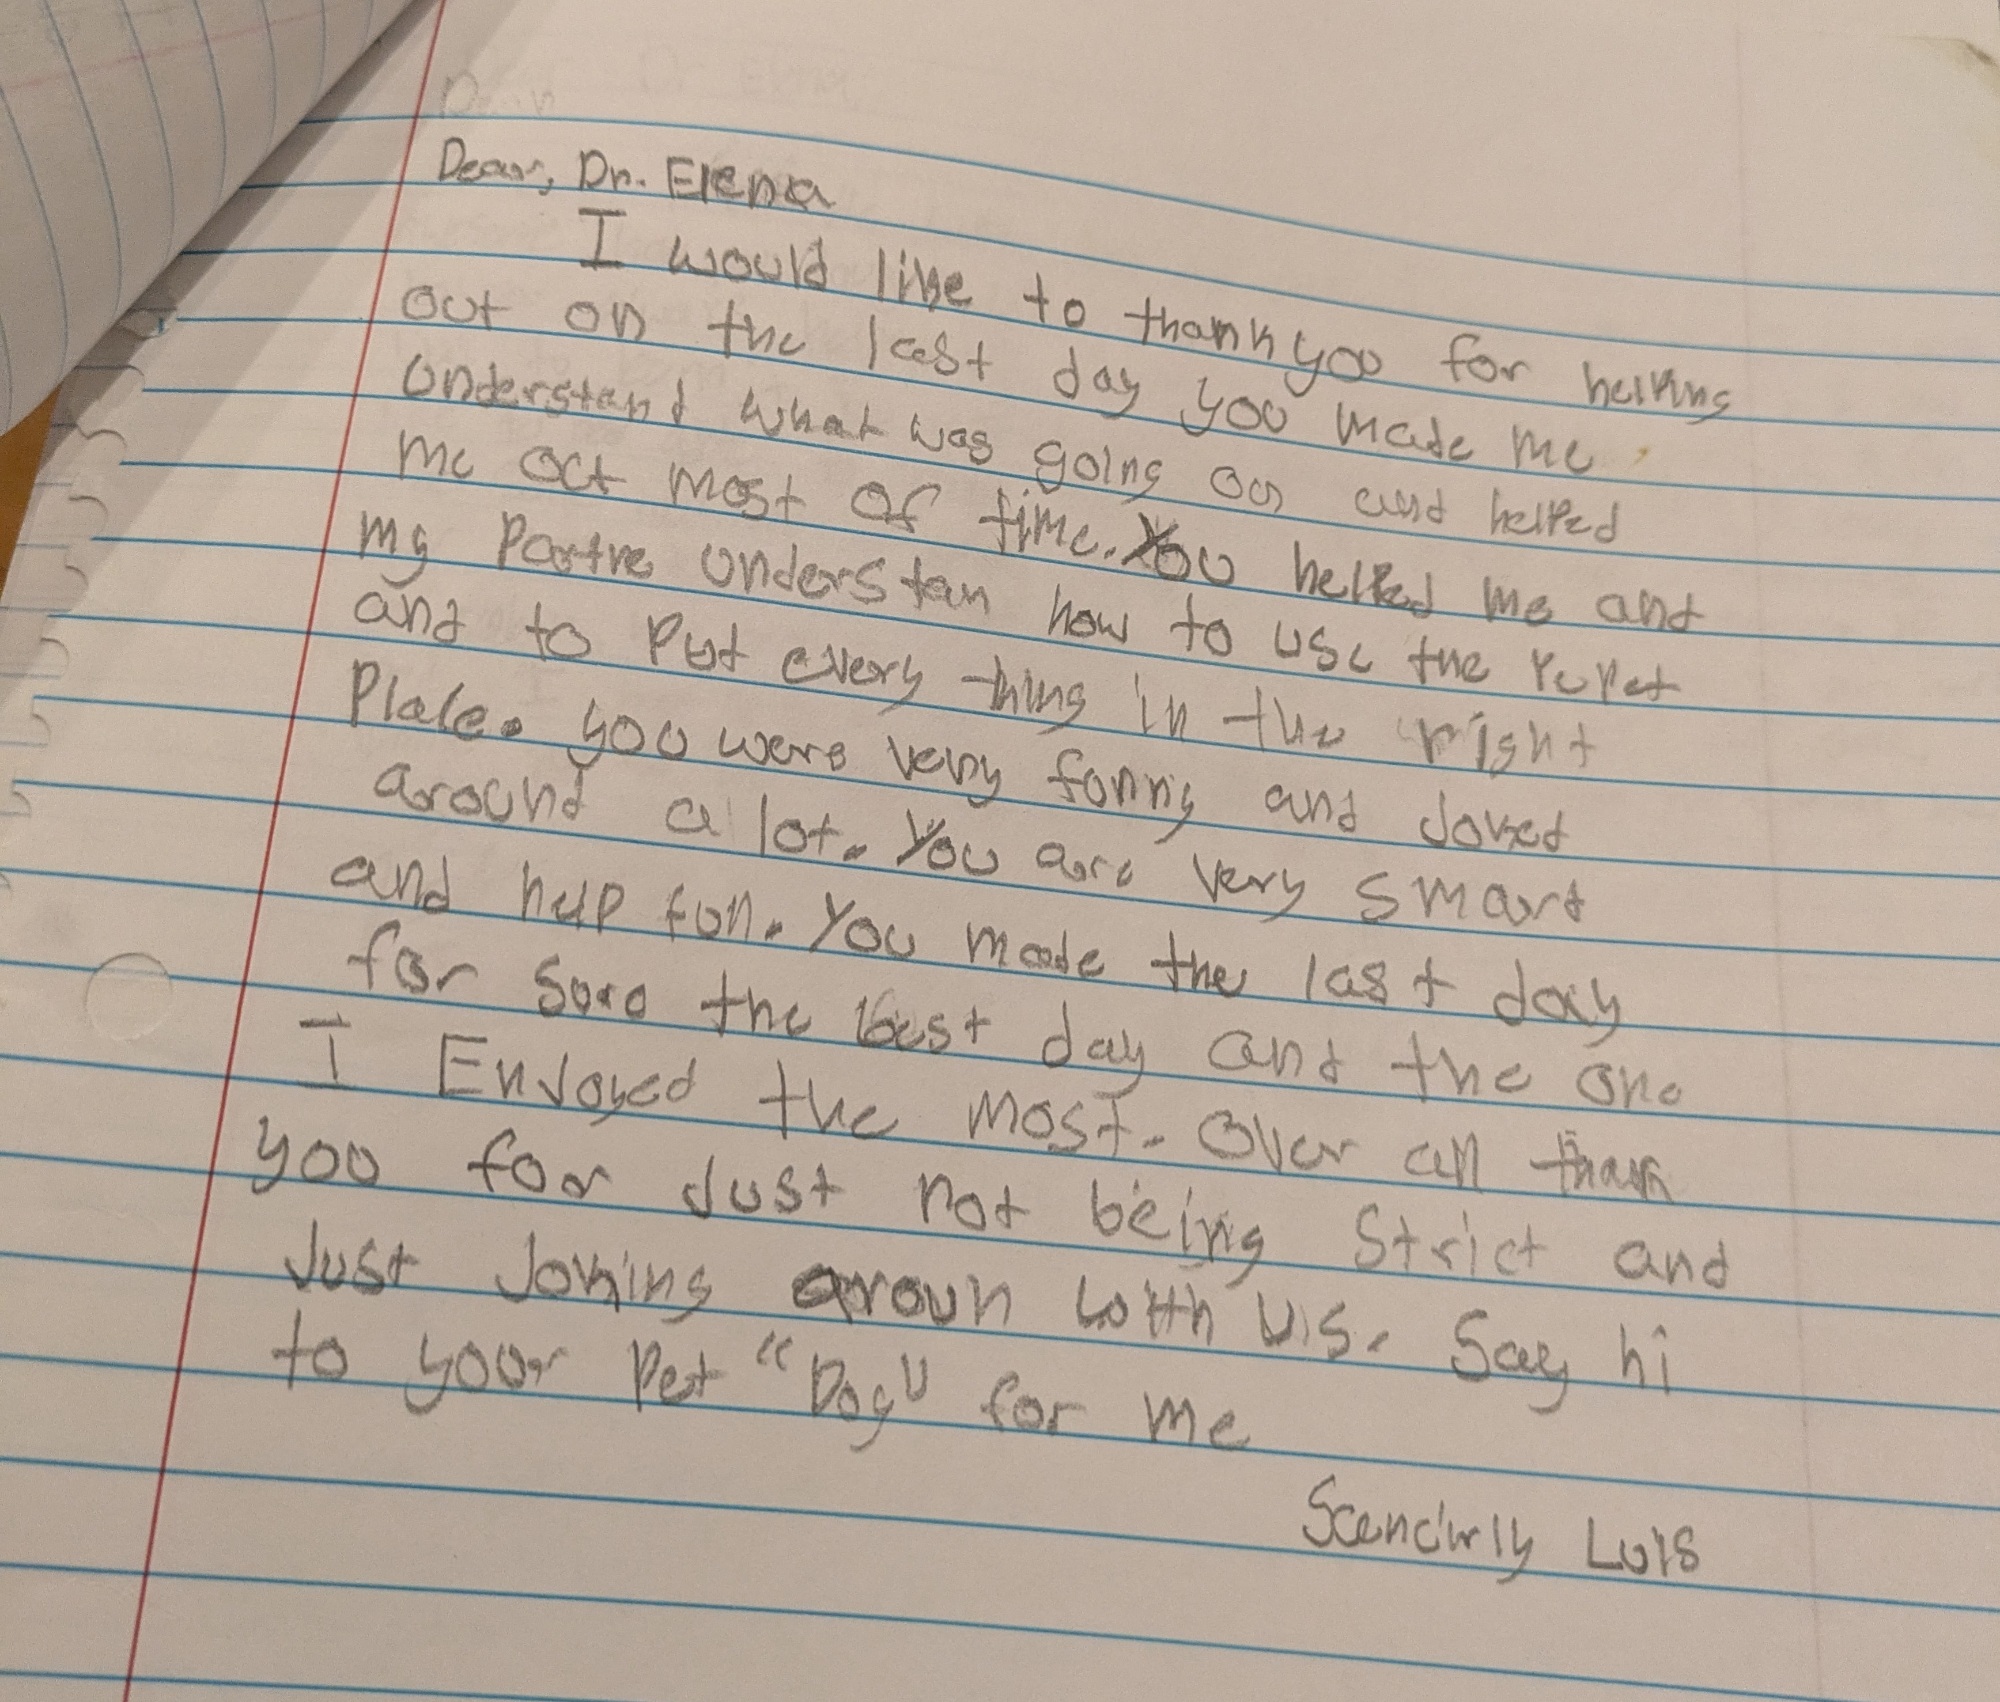 Dear, Dr. Elena
I would like to thank you for helping
out on the last day you made me
understand what was going on and helped
me oct most of time. You helped me and
my Partre understan how to use the Pupet
and to Put every thing in the right
Place. you were very fonny and Joked
around a lot. You are very smart
and help fun. You made the last day
for sure the best day and the one
I Enjoyed the most. Over all thank
you for Just not being Strict and
Just Joking aroun with us. Say hi
to your Pet "Dog" for me
Scencirly Luis